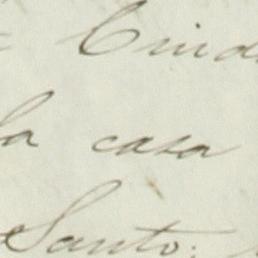 Ciud
la casa
Santo: